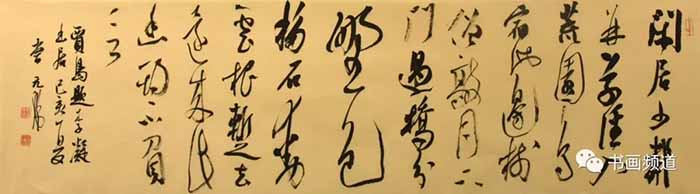 閑居少鄰
并草徑入
荒園鳥
宿池邊樹
僧敲月下
門過橋分
野色
移石動
雲根暫去
還來此
幽期不負
言
賈島題李凝
幽居 己亥
书画频道